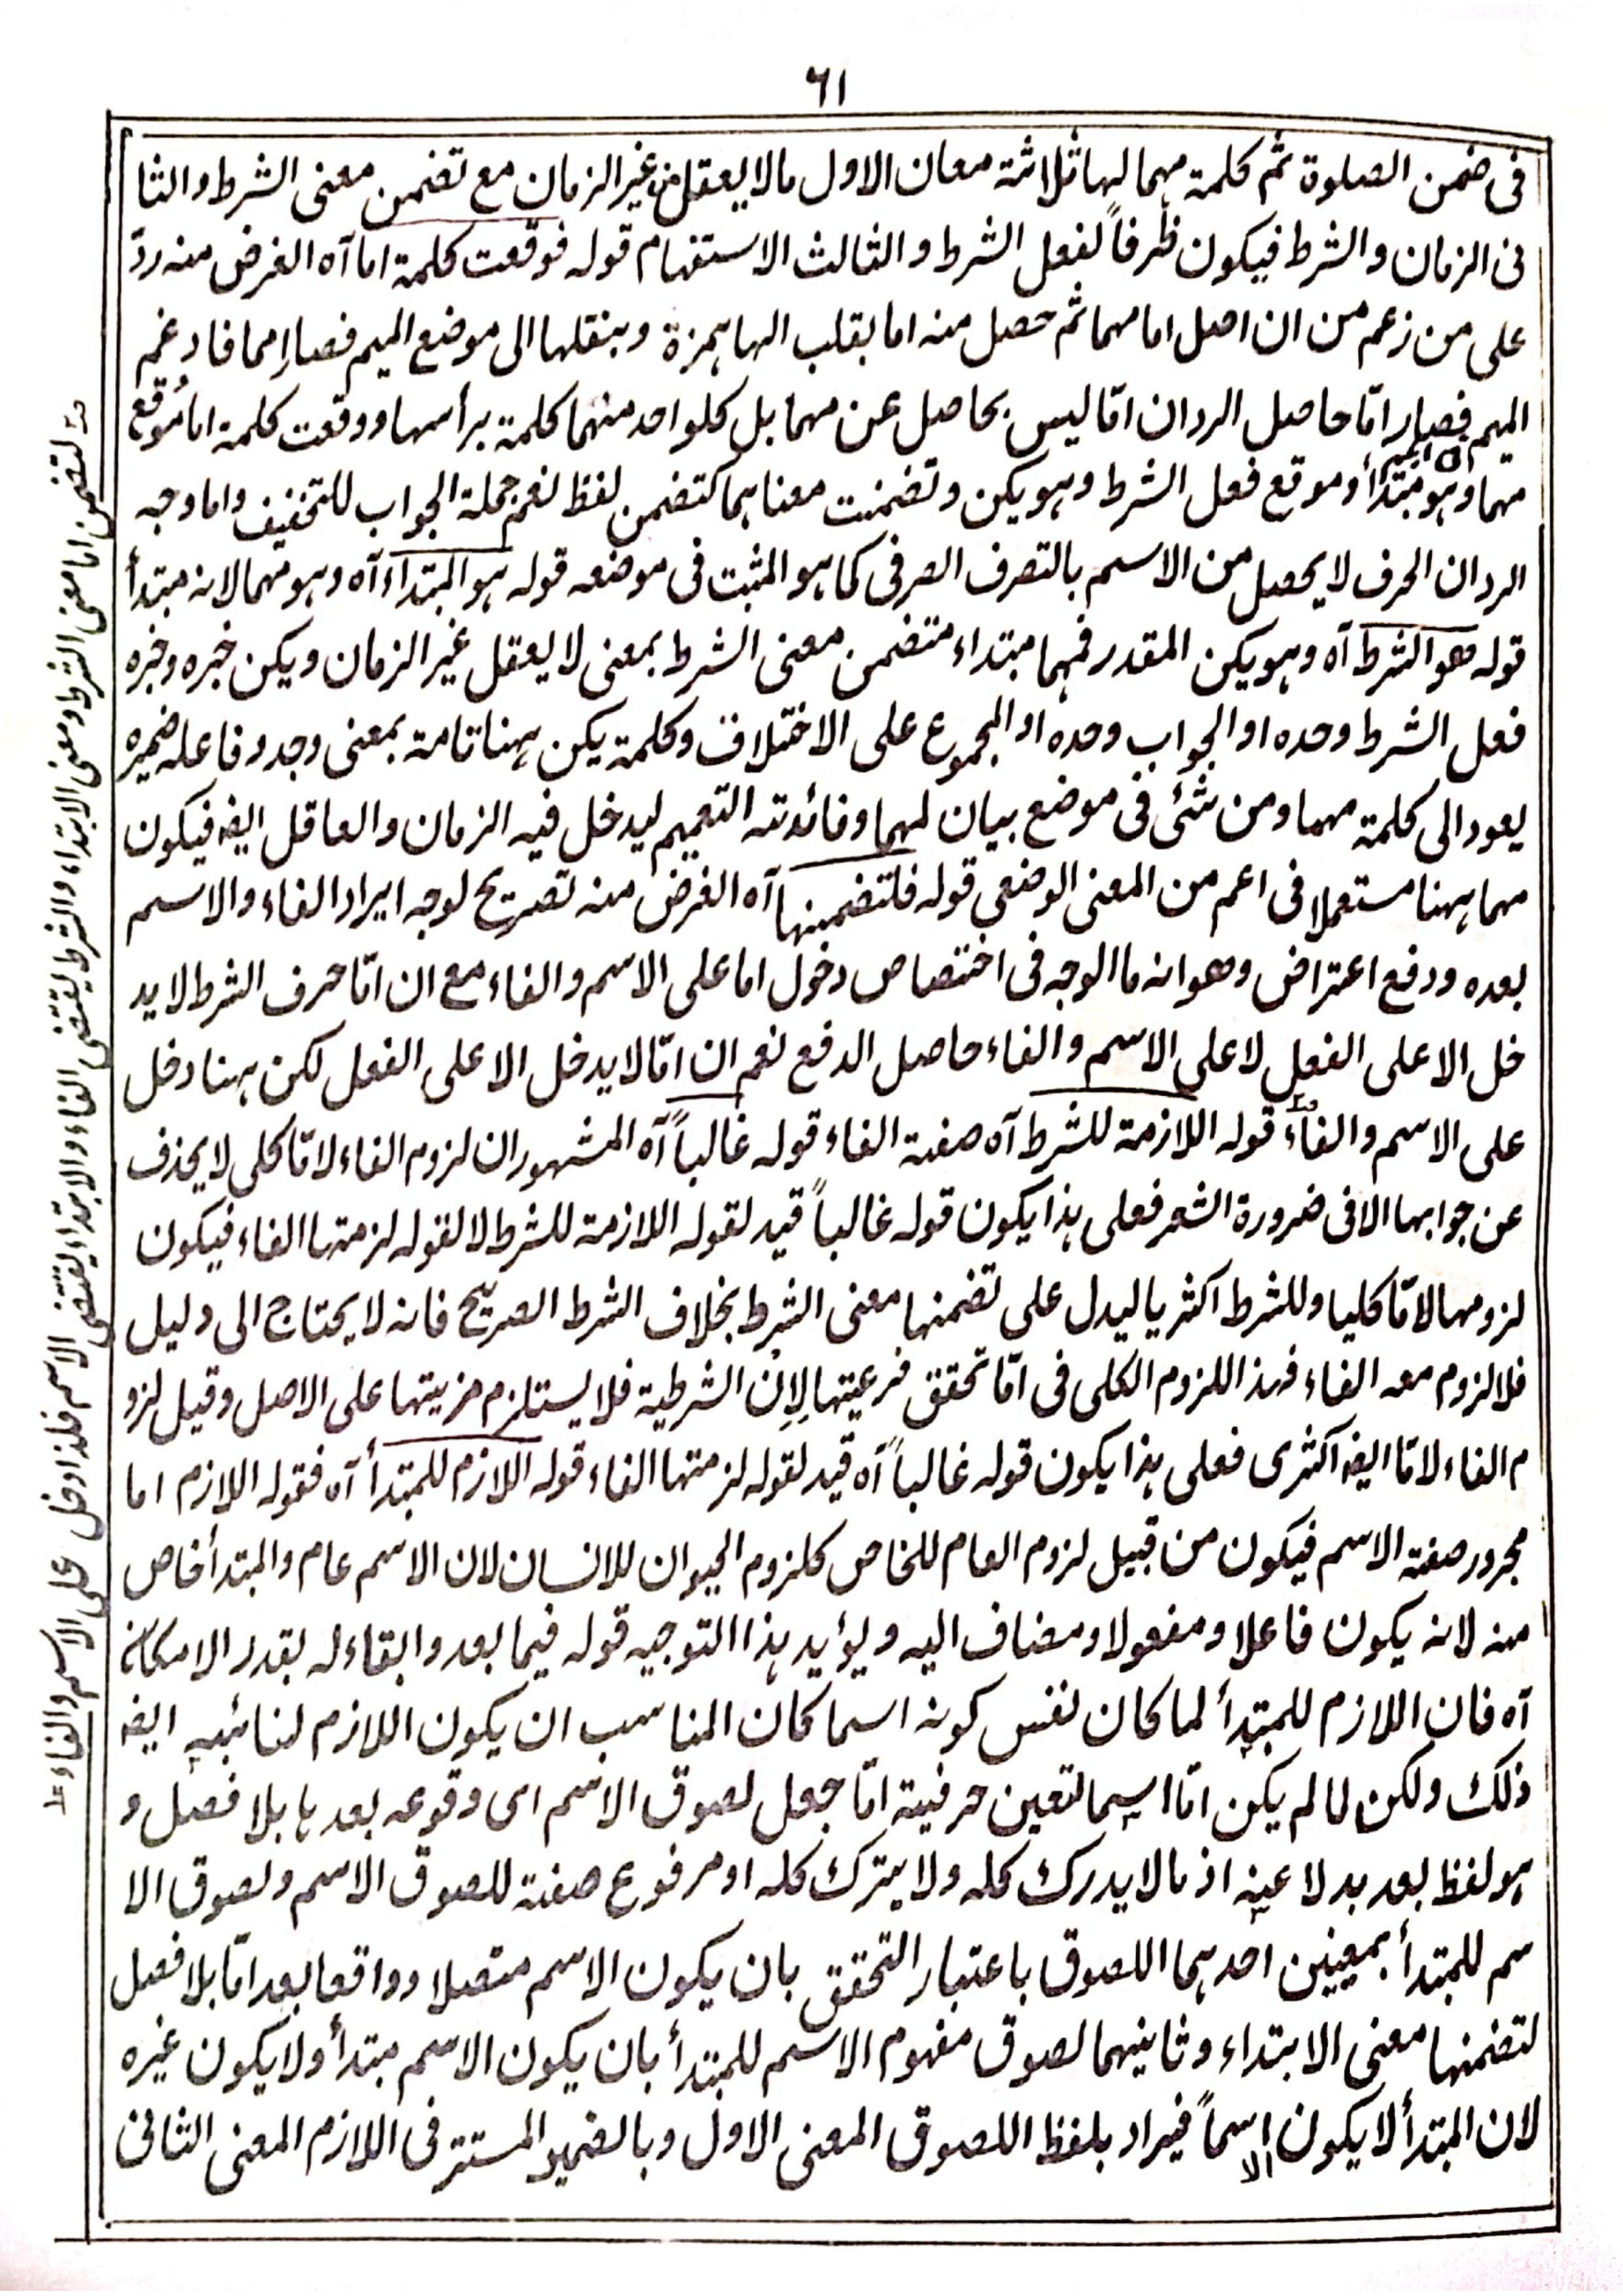 ٦١
فى ضمن الصلوة ثم كلمة مهما لها ثلاثة معان الاول ما لا يعقل من غير الزمان مع تضمن معنى الشرط و الثا
نى الزمان و الشرط فيكون ظرفاً لفعل الشرط و الثالث الاستفهام قوله فوقعت كلمة اما آه الغرض منه ردّ
على من زعم من ان اصل اما مهما ثم حصل منه اما بقلب الها همزة و بنقلها الى موضع الميم فصار إمما فادغم
الميم فصار امّا حاصل الرد ان امّا ليس بحاصل عن مهما بل كلواحد منهما كلمة برأسها و وقعت كلمة اما مُوقع
مهما و هو مبتدأ و موقع فعل الشرط و هو يكن و تضمنت معناهما كتضمن لفظ نعم جملة الجواب للتخفيف و اما وجه
الرد ان الحرف لا يحصل من الاسم بالتصرف الصرفى كما هو المثبت فى موضعه قوله هو المبتداء آه و هو مهما لانه مبتدأ
قوله هو الشرط آه و هو يكن المقدر فمهما مبتداء متضمن معنى الشرط بمعنى لا يعقل غير الزمان و يكن خبره و خبره
فعل الشرط وحده او الجواب وحده او المجموع على الاختلاف و كلمة يكن ههنا تامة بمعنى وجد و فاعله ضميره
يعود الى كلمة مهما و من شئى فى موضع بيان لمهما و فائدته التعميم ليدخل فيه الزمان و العاقل ايضا فيكون
مهما ههنا مستعملا فى اعم من المعنى الوضعى قوله فلتضمنها آه الغرض منه تصريح لوجه ايراد الفاء و الاسم
بعده و دفع اعتراض و هو انه ما الوجه فى اختصاص دخول اما على الاسم و الفاء مع ان امّا حرف الشرط لا يد
خل الا على الفعل لا على الاسم و الفاء حاصل الدفع نعم ان امّا لا يدخل الا على الفعل لكن ههنا دخل
على الاسم و الفاء قوله اللازمة للشرط آه صفة الفاء قوله غالباً آه المشهور ان لزوم الفاء لامّا كلى لا يحذف
عن جوابها الا فى ضرورة الشعر فعلى هذا يكون قوله غالباً قيد لقوله اللازمة للشرط لا لقوله لزمتها الفاء فيكون
لزومها لامّا كليا و للشرط اكثريا ليدل على تضمنها معنى الشرط بخلاف الشرط الصريح فانه لا يحتاج الى دليل
فلا لزوم معه الفاء فهذا اللزوم الكلى فى امّا تحقق فرعيتها لإن الشرطية فلا يستلزم مزيتها على الاصل و قيل لزو
م الفاء لامّا ايضا اكثرى فعلى هذا يكون قوله غالباً آه قيد لقوله لزمتها الفاء قوله اللازم للمبتدأ آه فقوله اللازم اما
مجرور صفة الاسم فيكون من قبيل لزوم العام للخاص كلزوم الحيوان للانسان لان الاسم عام و المبتدأ خاص
منه لانه يكون فاعلا و مفعولا و مضاف اليه و يؤيد هذا التوجيه قوله فيما بعد و ابقاء له بقدر الامكان
آه فان اللازم للمبتدأ لما كان نفس كونه اسما كان المناسب ان يكون اللازم لنائبه ايضا
ذلك و لكن لما لم يكن امّا اسما لتعين حرفية امّا جعل لصوق الاسم اى وقوعه بعدها بلا فصل و
هو لفظ بعد بدلا عنه اذ ما لا يدرك كله و لا يترك كله او مرفوع صفة للصوق الاسم و لصوق الا
سم للمبتدأ بمعيين احدهما اللصوق باعتبار التحقق بان يكون الاسم متصلا و واقعا بعد امّا بلا فصل
لتضمنها معنى الابتداء و ثانيهما لصوق مفهوم الاسم للمبتدأ بان يكون الاسم مبتدأ و لا يكون غيره
لان المبتدأ لا يكون الا اسماً فيراد بلفظ اللصوق المعنى الاول و بالضمير المستتر فى اللازم المعنى الثانى
لتضمن اما معنى الشرط و معنى الابتداء و الشرط يقتضى الفاء و الابتداء يقتضى الاسم فلذا دخل على الاسم و الفاء